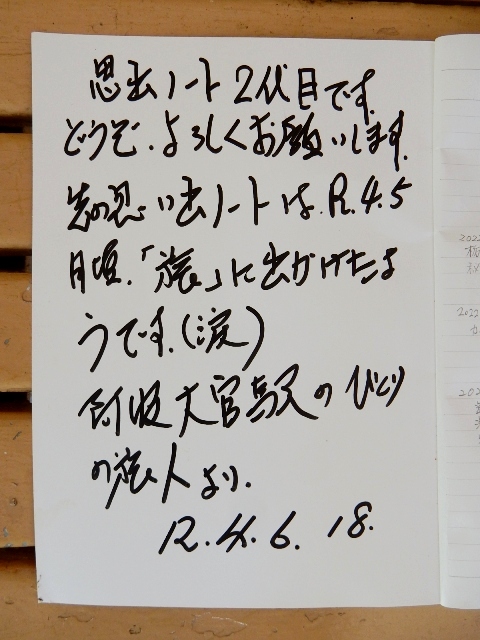 思出ノート2代目です.
どうぞ.よろしくお願いします.
先の思い出ノートは.R.4.5
月頃.「旅」に出かけたよ
うです.(涙)
大官駅のひとり
の旅人より.
R.4.6.18.
2022
2022